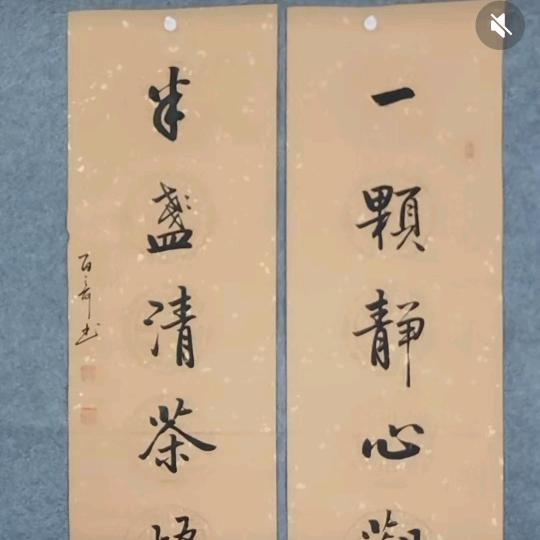 一顆靜心
半盞清茶
百奇书